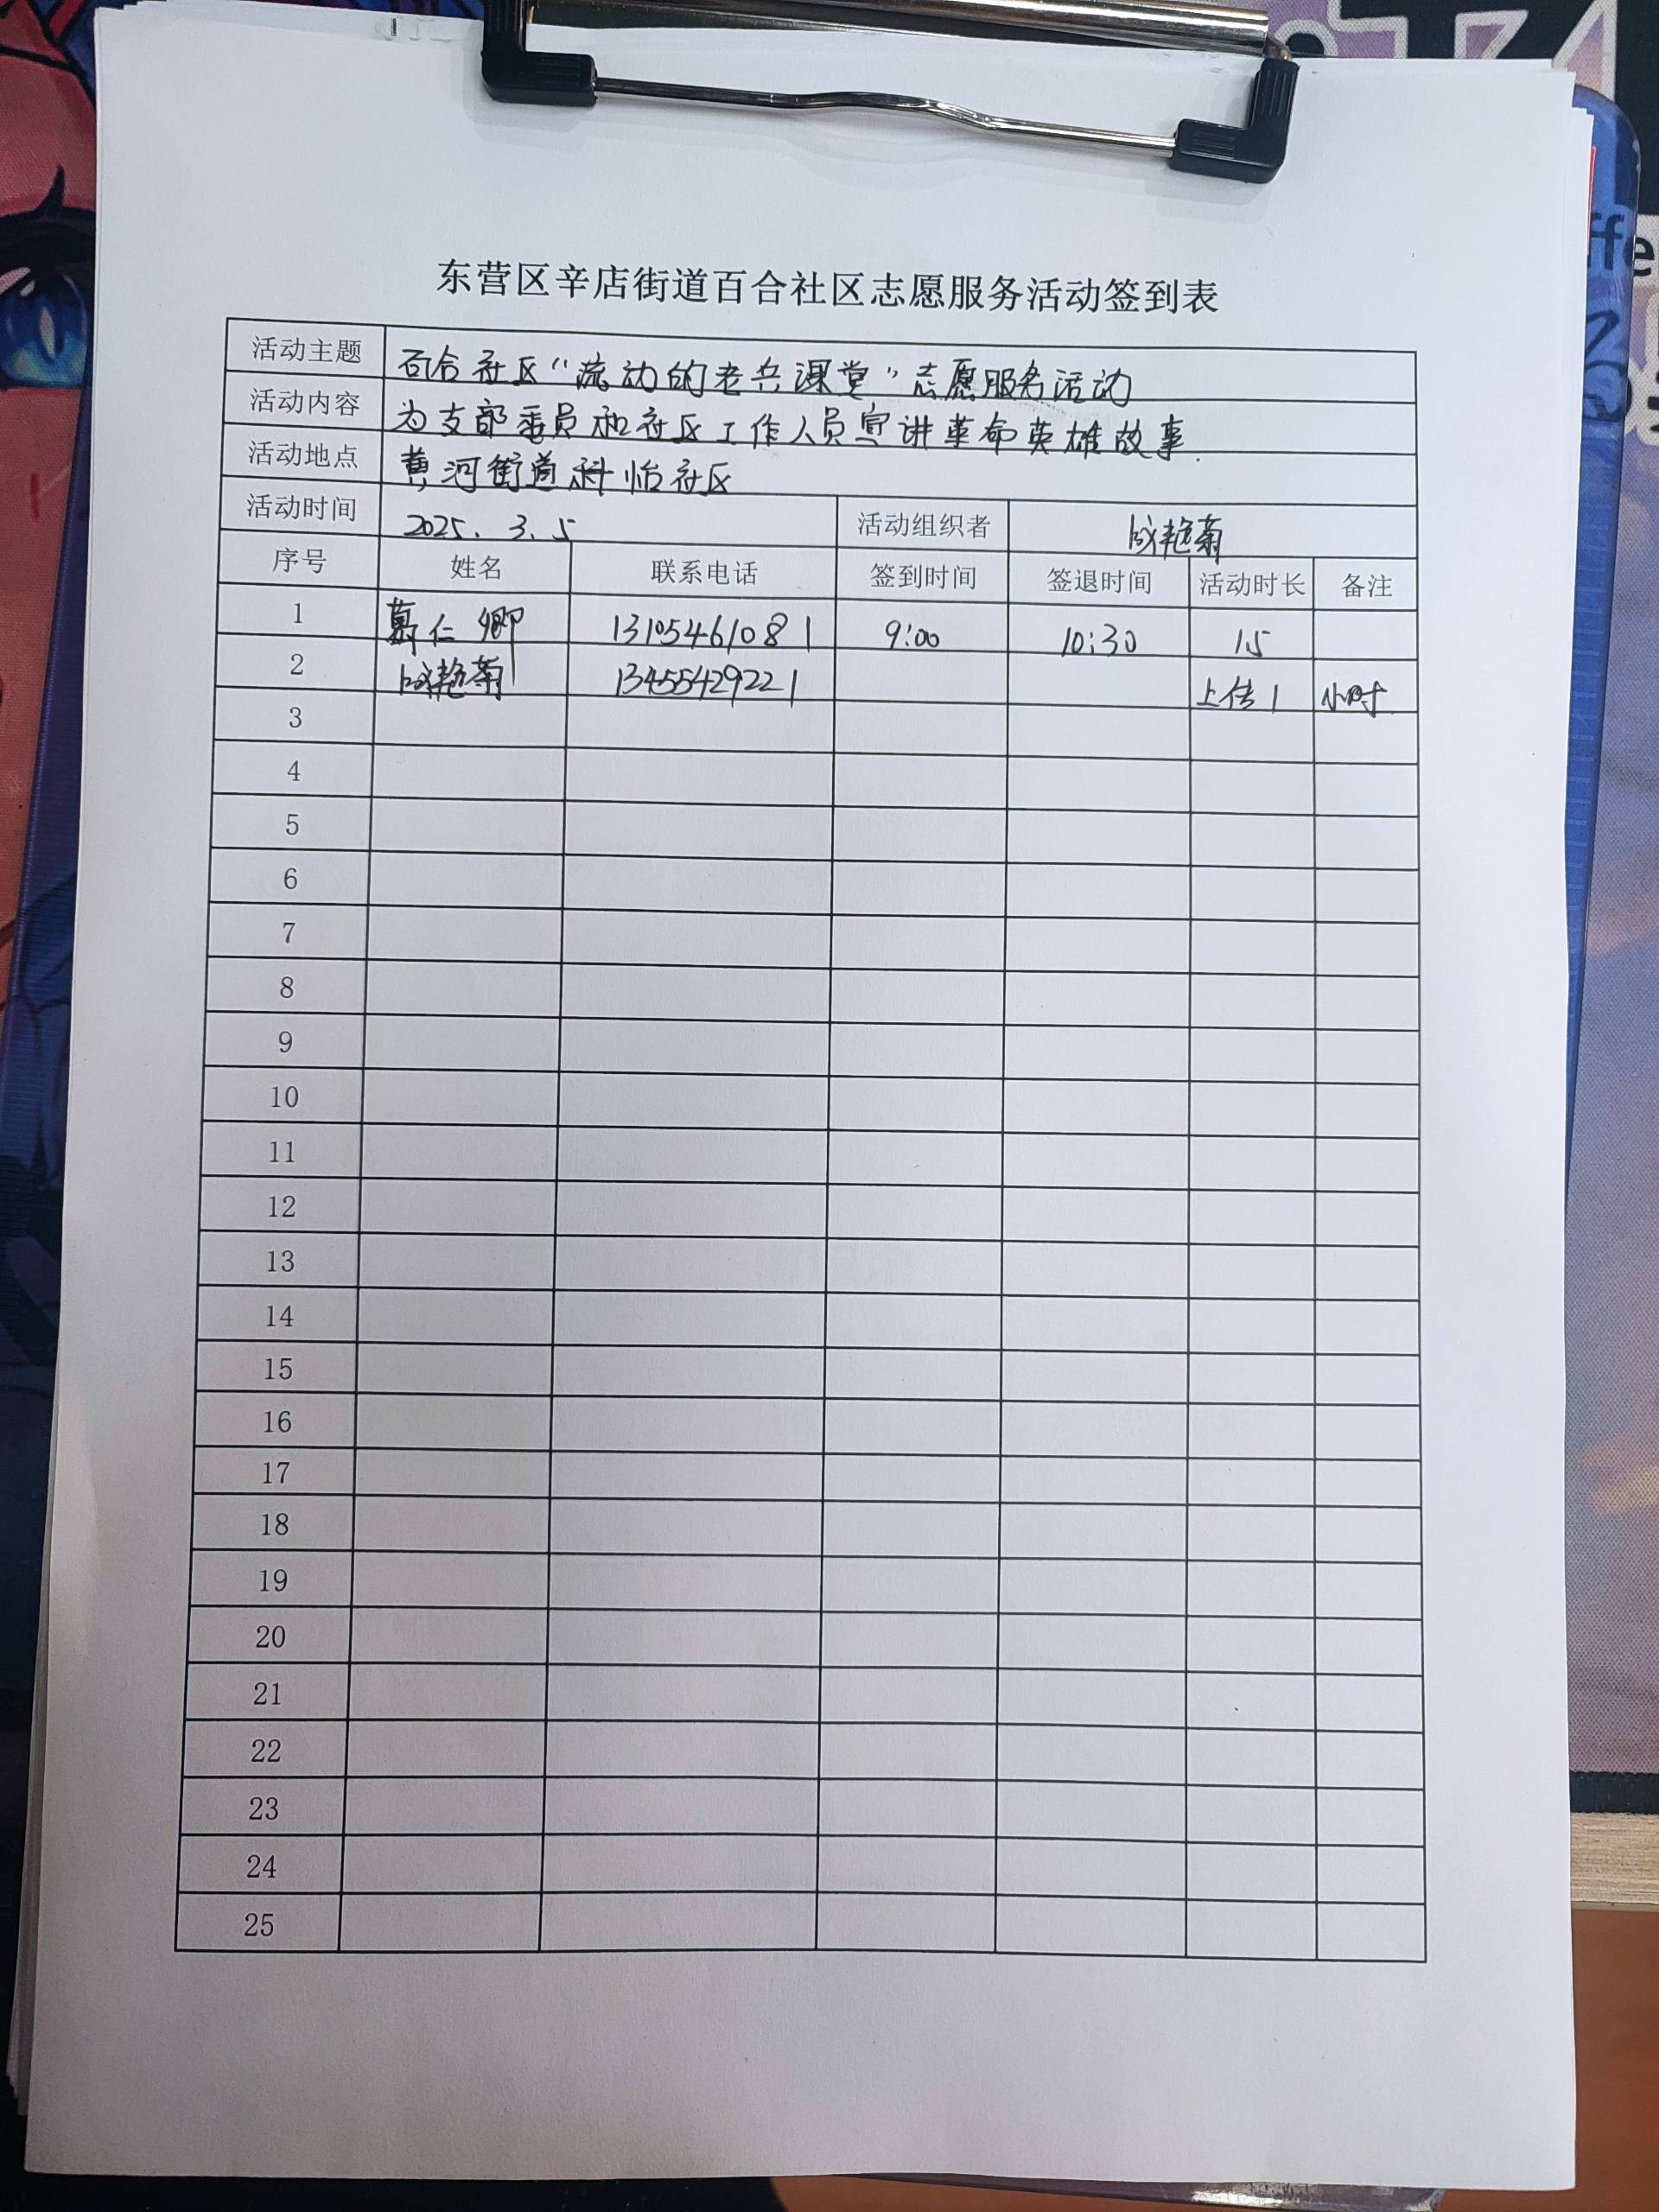 东营区辛店街道百合社区志愿服务活动签到表
活动主题 百合社区“流动的老兵课堂”志愿服务活动
活动内容 为支部委员和社区工作人员宣讲革命英雄故事.
活动地点 黄河街道科怡社区
活动时间 2025. 3. 5 活动组织者 成艳菊
序号 姓名 联系电话 签到时间 签退时间 活动时长 备注
1 葛仁卿 13105461081 9:00 10:30 1.5
2 成艳菊 13455429221 上传1 小时.
3
4
5
6
7
8
9
10
11
12
13
14
15
16
17
18
19
20
21
22
23
24
25